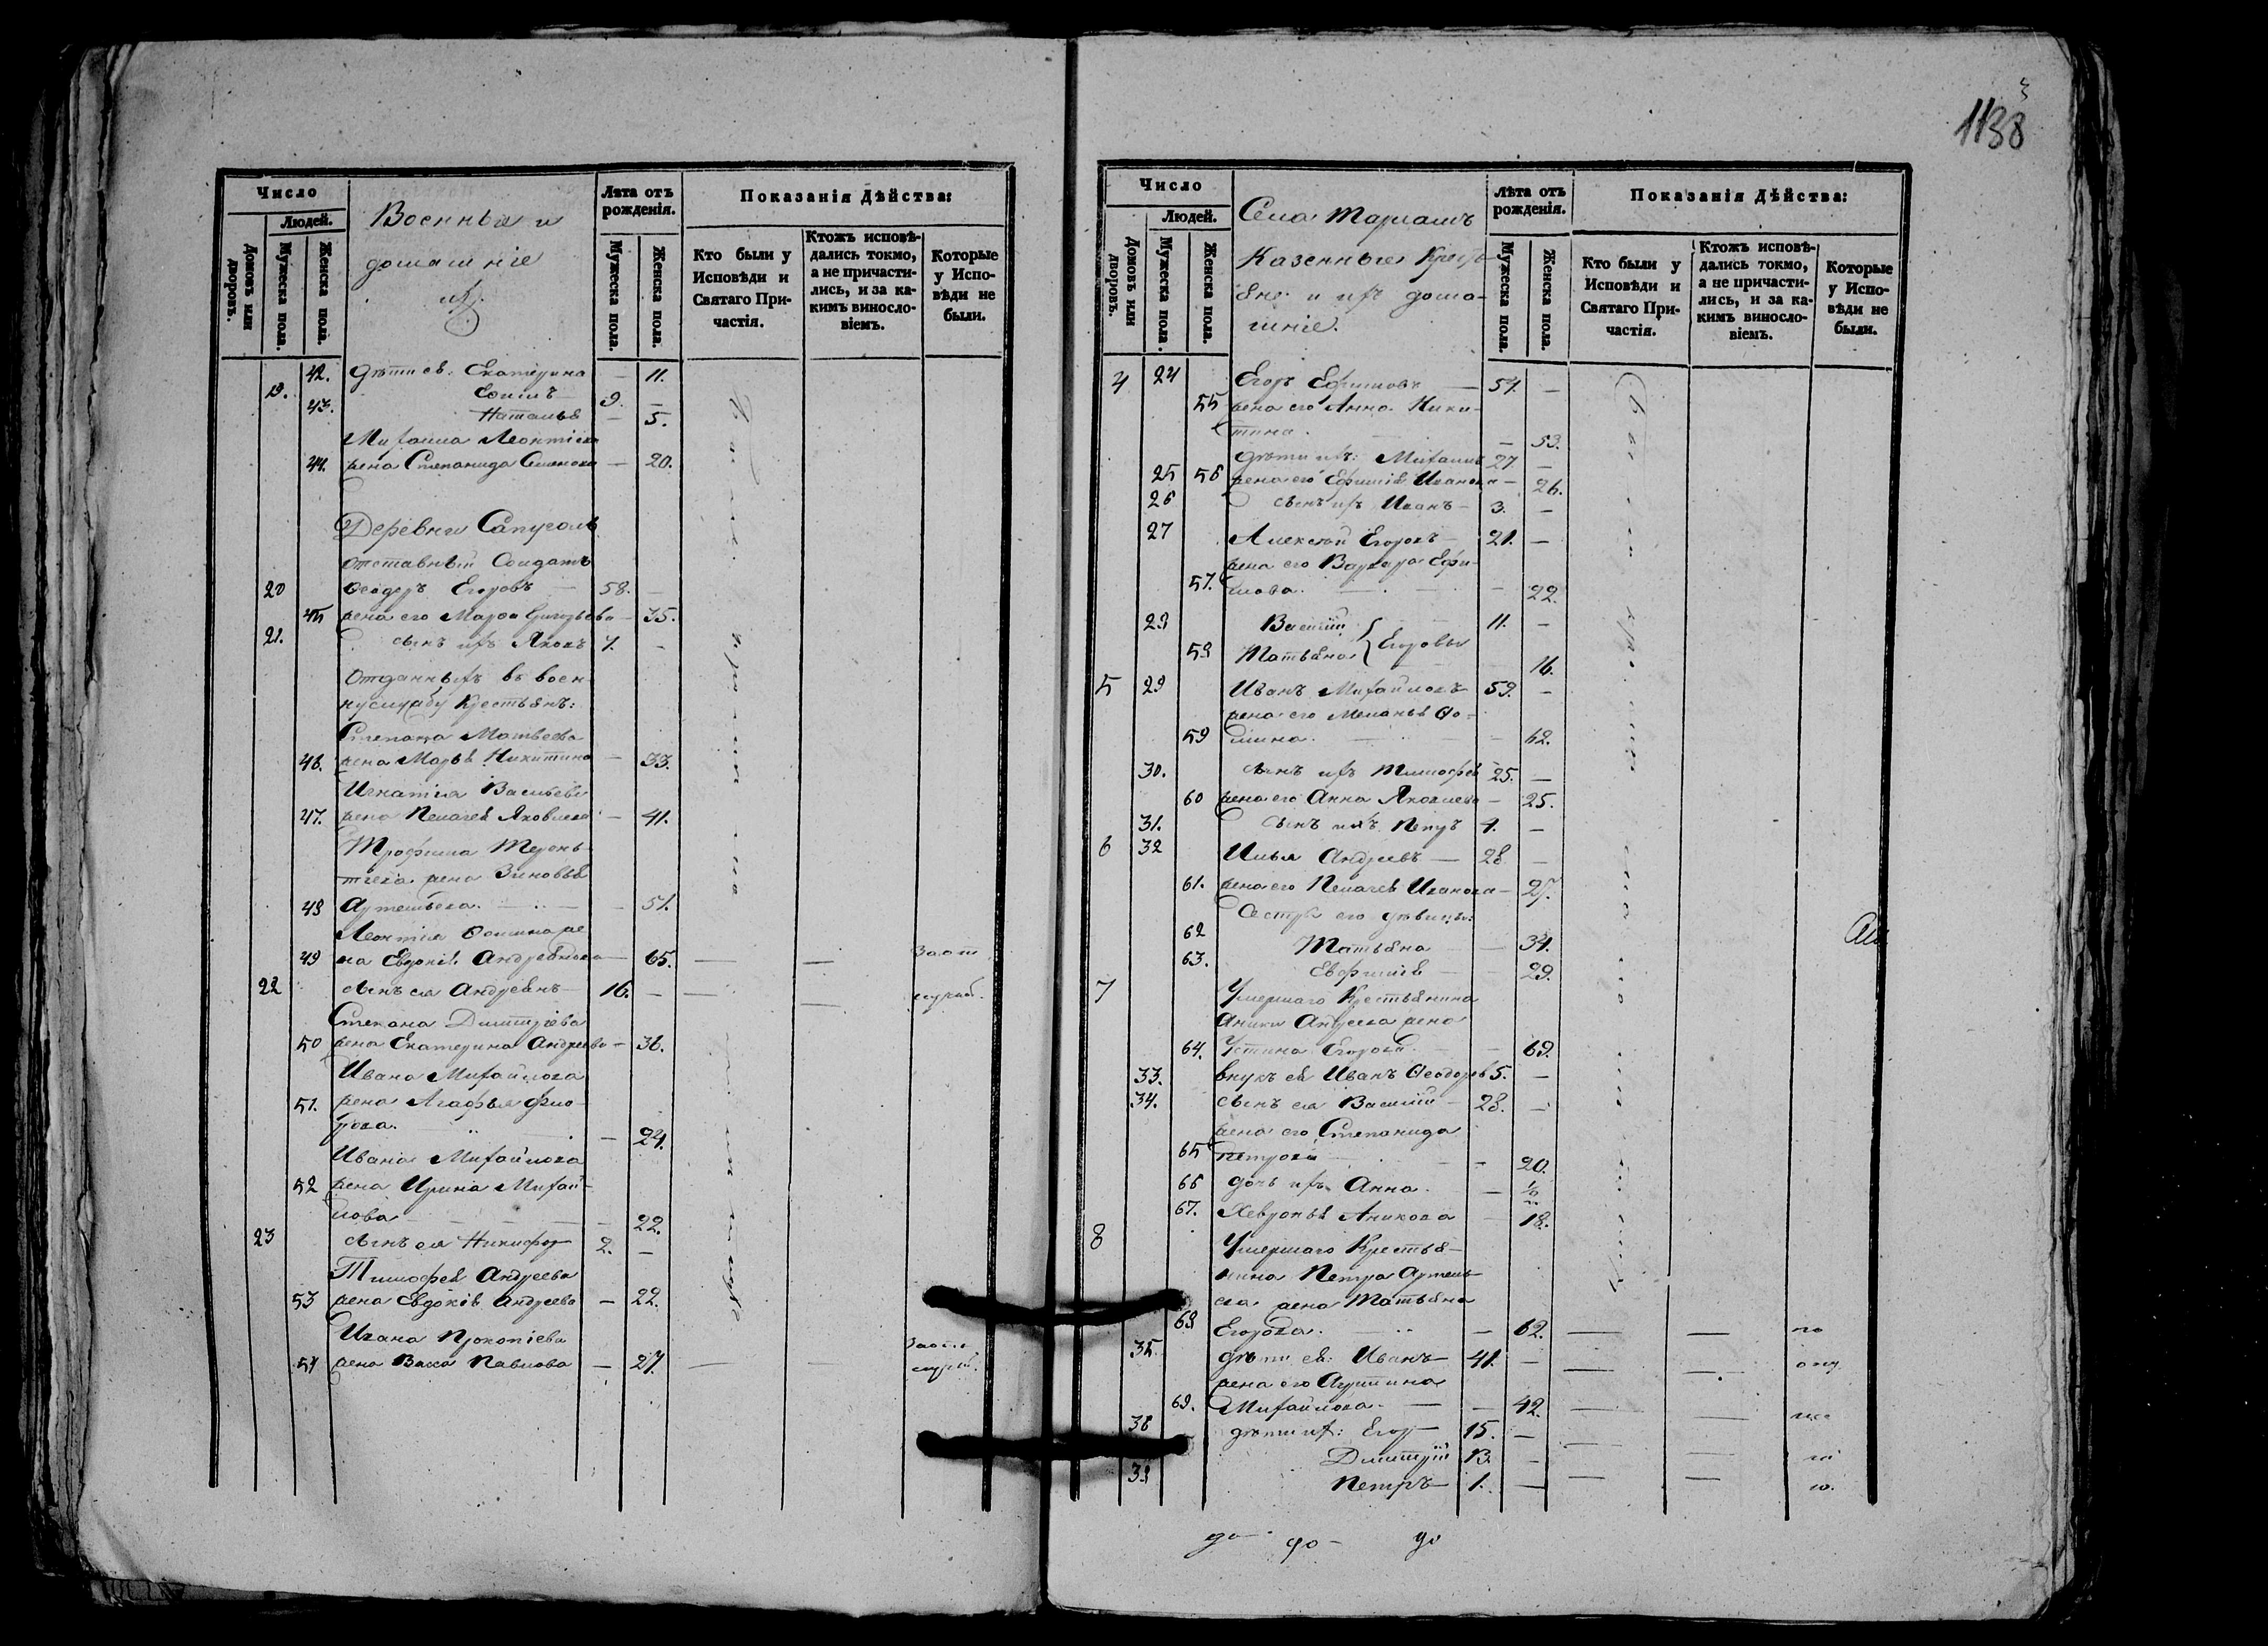 Число
Людей.
Домовъ или дворовъ.
Мужеска пола.
Женска пола.
Военныя и
домашніе
ихъ.
Лѣта отъ рожденія.
Мужеска пола.
Женска пола.
Показанія Дѣйства:
Кто были у Исповѣди и Святаго Причастія.
Ктожъ исповѣдались токмо, а не причастились, и за какимъ винословіемъ.
Которые у Исповѣди не были.
42. дѣти ея: Екатерина — 11.
19. 9. —
43. Наталья — 5.
Михаила Леонтіева
44. жена Степанида Семенова — 20.
Деревни
отставный Солдатъ
20 Ѳеодоръ Егоровъ — 58. —
45 жена его Марѳа Григорьева — 35.
21. сынъ ихъ Яковъ 7. —
Отданныхъ въ воен
ну службу Крестьянъ:
Степана Матвеева
46. жена Марья Никитина — 33.
Игнатія Васильева
47. жена Пелагея Яковлева — 41.
Трофима Терень-
тьева жена Зиновья
48 Артемьева. — 51.
Леонтія Ѳомина же
49 на Евдокія Андреянова — 65. — — За от
22 сынъ ея Андреянъ 16. — — —
Степана Димитріева
50 жена Екатерина Андреева — 36.
Ивана Михайлова
51. жена Агафья Фло-
рова. — 24.
Ивана Михайлова
52 жена Ирина Михай-
лова — 22.
23 сынъ ея Никифор 2. —
Тимофея Андреева
53 жена Евдокія Андреева — 22.
Ивана Прокопіева
54 жена Васса Павлова — 27. — —
1138
3
Число
Людей.
Домовъ или дворовъ.
Мужеска пола.
Женска пола.
Села
Казенныя Кресть
яне и ихъ дома-
шніе.
Лѣта отъ рожденія.
Мужеска пола.
Женска пола.
Показанія Дѣйства:
Кто были у Исповѣди и Святаго Причастія.
Ктожъ исповѣдались токмо, а не причастились, и за какимъ винословіемъ.
Которые у Исповѣди не были.
4 24 Егоръ Ефимовъ — 57. —
55 жена его Анна Ники-
тина. — 53.
25 дѣти ихъ: Михаилъ 27 —
56 жена его Ефимія Иванова — 26.
26 сынъ ихъ Иванъ — 3. —
27 Алексѣй Егоровъ — 21. —
жена его Варвара Ефи-
57. мова. — 22.
28 Василій 11. —
Егоровы
58 Татьяна 16.
5 29 Иванъ Михайловъ 59. —
жена его Меланья Ѳо-
59 мина. — 62.
30. сынъ ихъ Тимофей 25. —
60 жена его Анна Яковлева — 25.
31. сынъ ихъ Петръ 4. —
6 32 Илья Андреевъ — 28 —
61. жена его Пелагея Иванова — 27.
Сестры его дѣвицы:
62 Татьяна — 34.
63. Евфимія — 29.
7 Умершаго Крестьянина
Аники Андреева жена
64. Устина Егорова — 69.
33. внукъ ея Иванъ Ѳеодоровъ 5. —
34. сынъ ея Василій — 28. —
жена его Степанида
65 Петрова — 20.
66 дочь ихъ Анна. — 1/2
67. Хевронья Аникова — 18.
8 Умершаго Крестья-
нина Петра Артемь-
ева жена Татьяна
68 Егорова. — 62. — — по
35. дѣти ея: Иванъ 41. — — —
жена его Агрипина
69. Михайлова. — 42. — —
36 дѣти ихъ: Егор 15. — — —
Димитрій 13 — — —
38 Петръ — 1. — — —
до- до- до